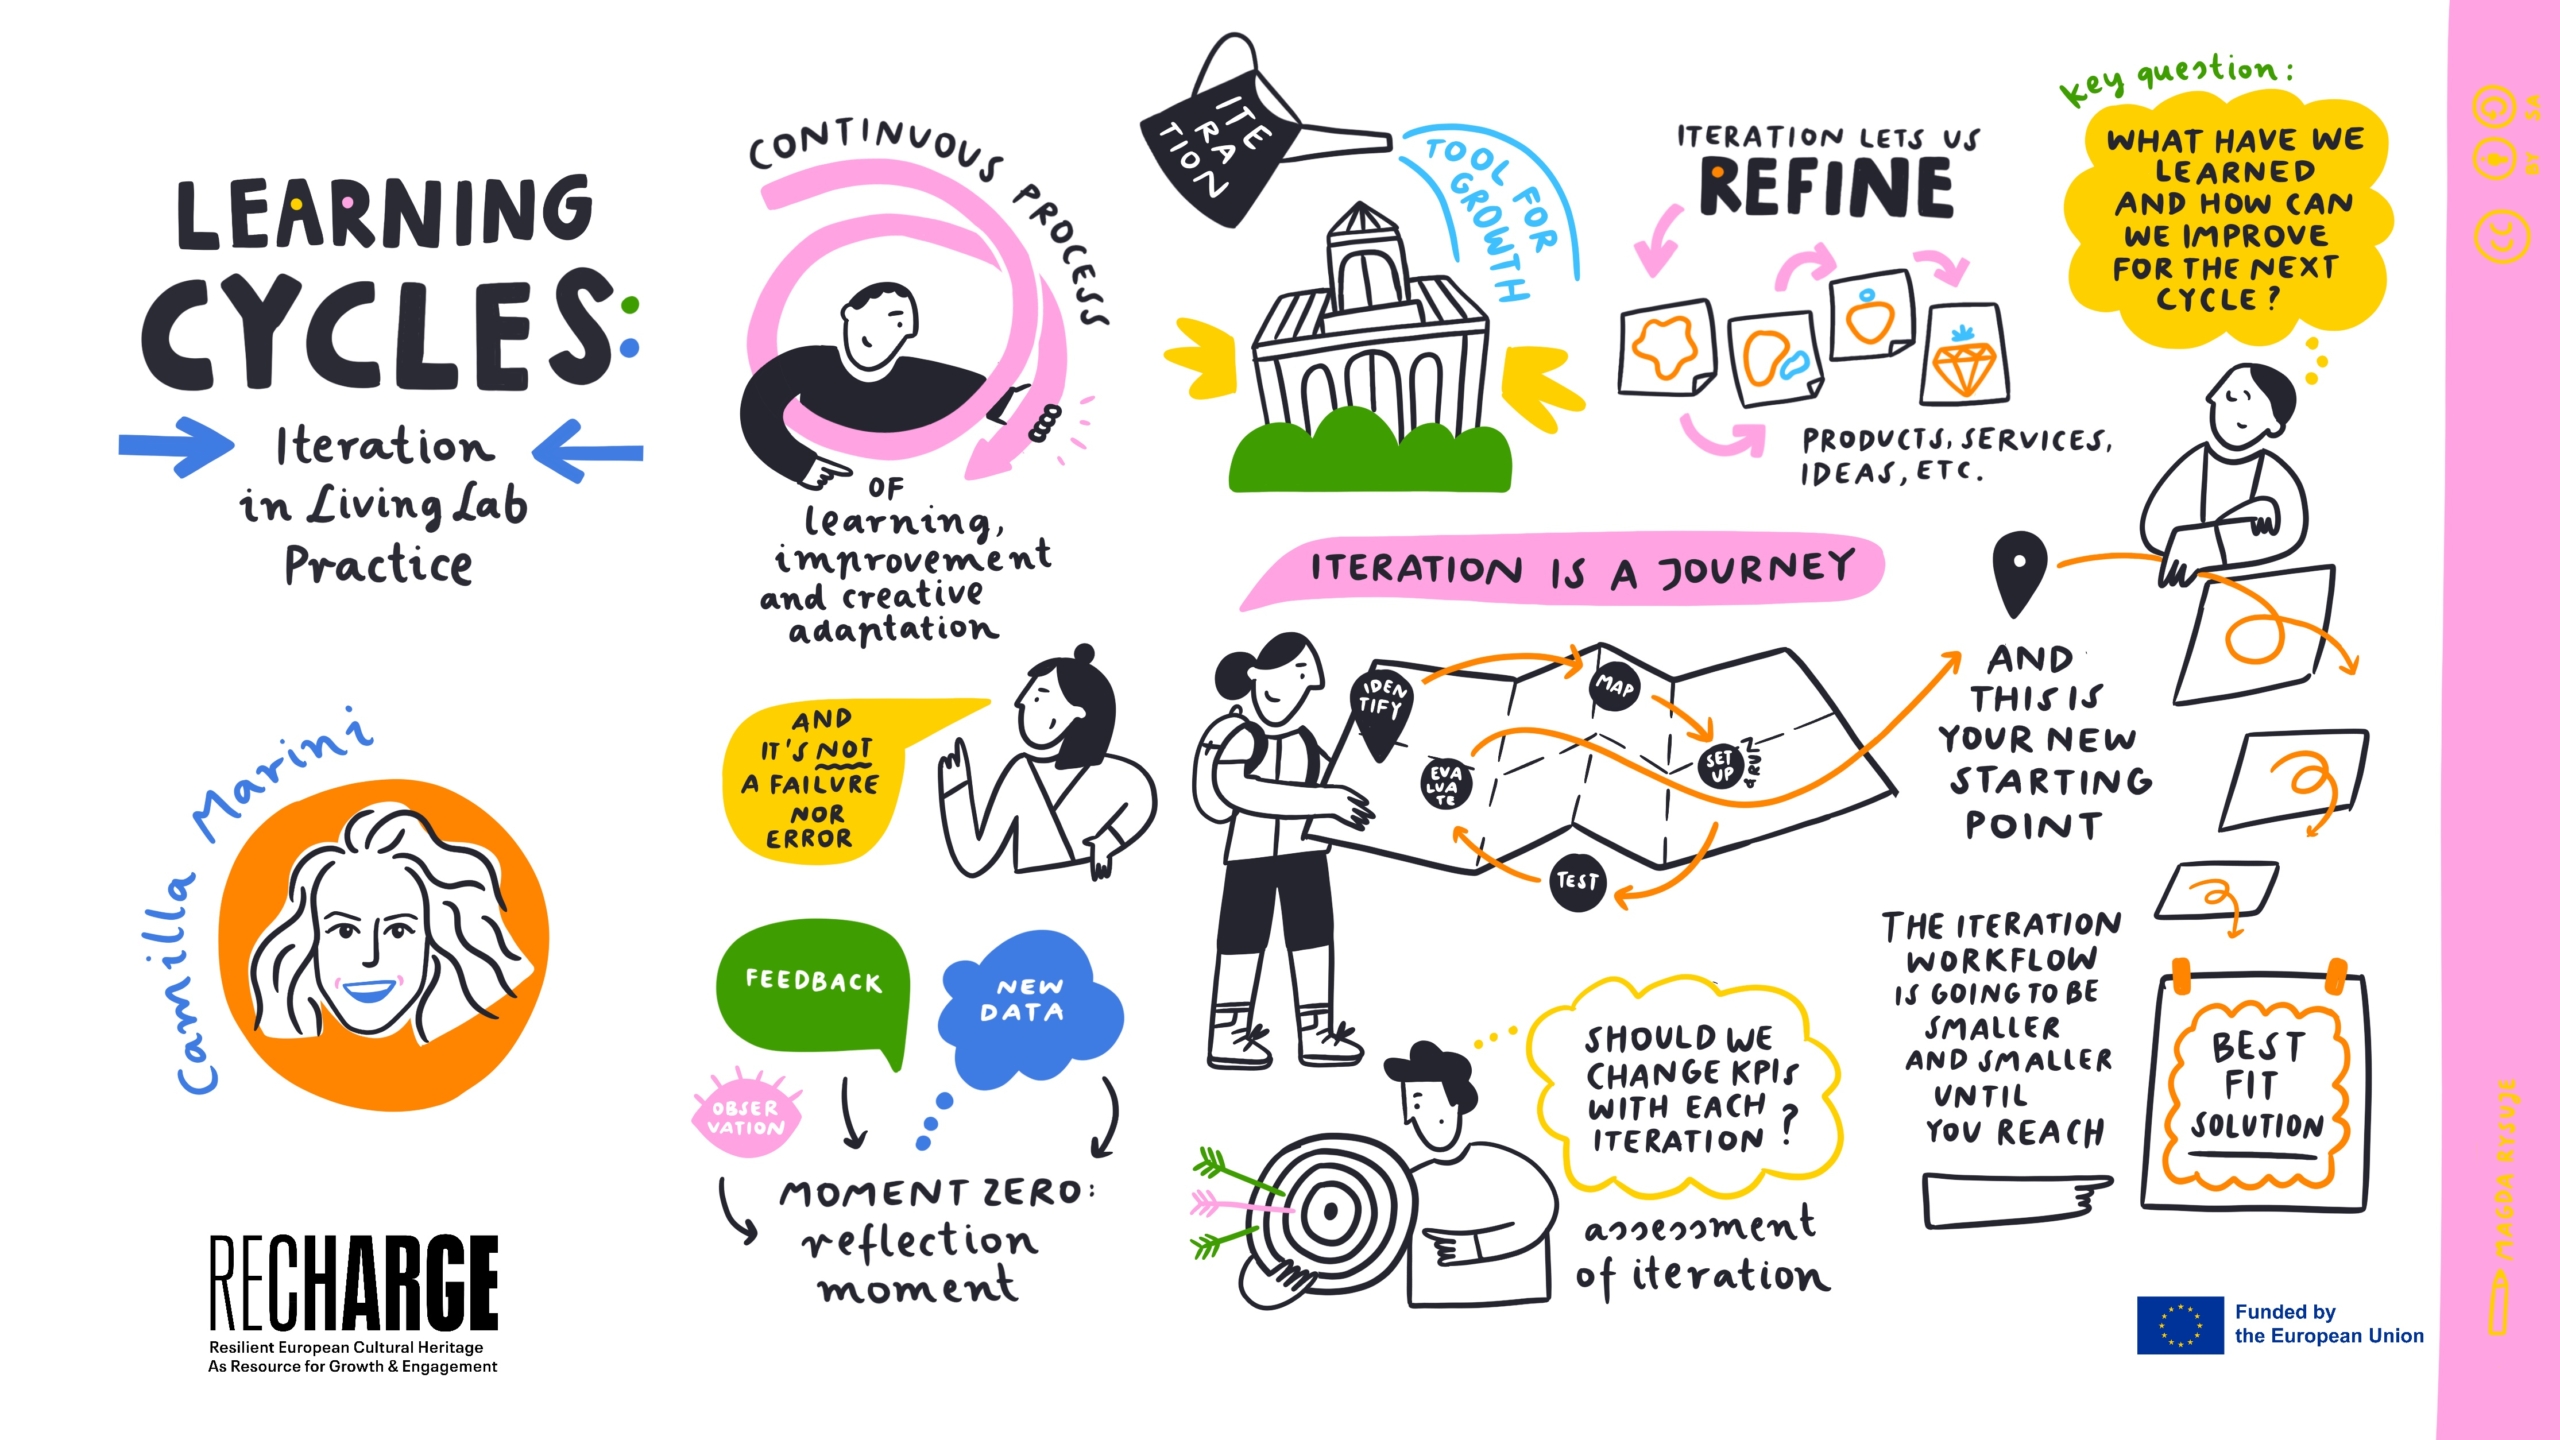 LEARNING
CYCLES:
Iteration
in Living Lab
Practice
Camilla Marini
RECHARGE
Resilient European Cultural Heritage
As Resource for Growth & Engagement
CONTINUOUS PROCESS
OF
learning,
improvement
and creative
adaptation
AND
IT'S NOT
A FAILURE
NOR
ERROR
FEEDBACK
NEW
DATA
OBSER
VATION
MOMENT ZERO:
reflection
moment
ITE
RA
TION
TOOL FOR
GROWTH
ITERATION LETS US
REFINE
PRODUCTS, SERVICES,
IDEAS, ETC.
key question:
WHAT HAVE WE
LEARNED
AND HOW CAN
WE IMPROVE
FOR THE NEXT
CYCLE?
ITERATION IS A JOURNEY
IDEN
TIFY
MAP
SET
UP
& RUN
TEST
EVA
LUA
TE
AND
THIS IS
YOUR NEW
STARTING
POINT
SHOULD WE
CHANGE KPIs
WITH EACH
ITERATION?
assessment
of iteration
THE ITERATION
WORKFLOW
IS GOING TO BE
SMALLER
AND SMALLER
UNTIL
YOU REACH
BEST
FIT
SOLUTION
Funded by
the European Union
CC
BY
SA
MAGDA RYSUJE